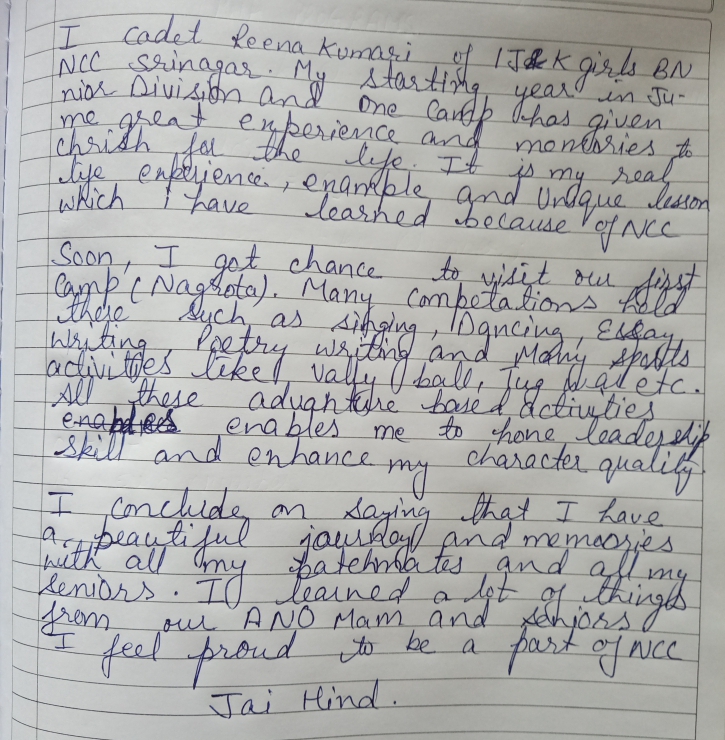 I cadet Reena Kumari of 1J&K girls BN
NCC Srinagar. My starting year in Ju-
nior Division and one Camp has given
me great experience and memories to
chrish for the life. It is my real
life experience, enample and Unique lesson
which i have learned because of NCC
Soon, I got chance to visit our first
Camp (Nagrota). Many competations hold
there such as singing, Dancing, Essay
writing Poetry writing and Many sports
activities like vally ball, Tug War etc.
All these advanture based activities
enables me to hone leadership
skill and enhance my character quality
I conclude on saying that I have
a beautiful and memories
with all my batchmates and all my
seniors. I learned a lot of things
from our ANO Mam and seniors
I feel proud to be a part of NCC
Jai Hind.